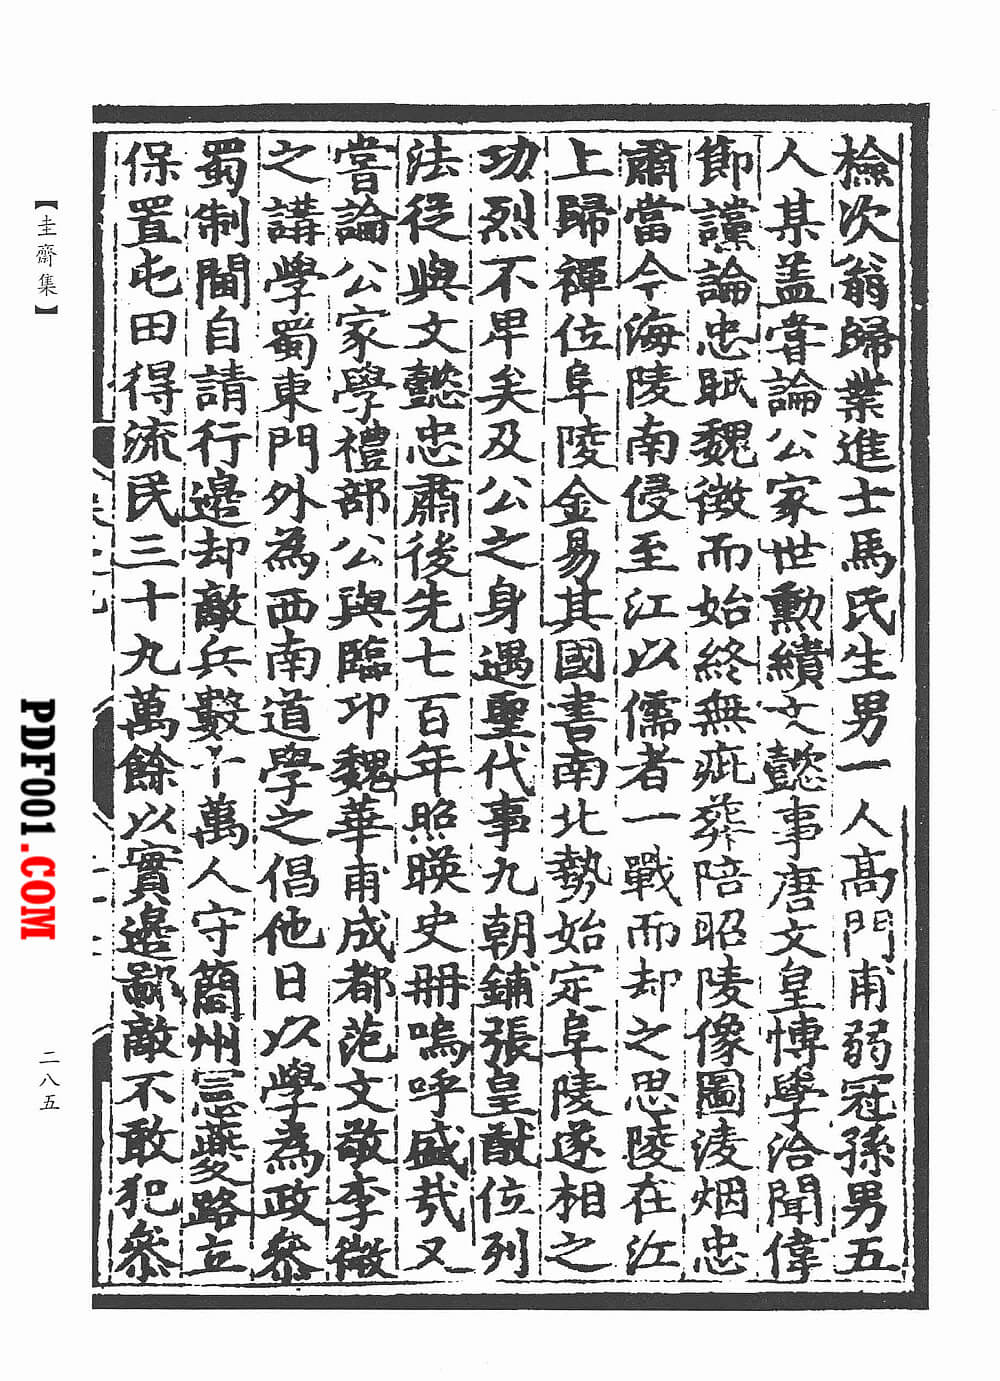 檢次翁歸業進士馬氏生男一人髙門甫弱冠孫男五
人某盖甞論公家世勳績文懿事唐文皇博學洽聞偉
節讜論忠貺魏徵而始終無疵葬陪昭陵像圖淩烟忠
肅當今海陵南侵至江以儒者一戰而却之思陵在江
上歸禪位阜陵金易其國書南北勢始定阜陵遂相之
功烈不卑矣及公之身遇聖代事九朝鋪張皇猷位列
法從與文懿忠肅後先七百年照暎史冊嗚呼盛㢤又
嘗論公家學禮部公與臨卭魏華甫成都范文敬李微
之講學蜀東門外為西南道學之倡他日以學為政叅
蜀制閫自請行邉却敵兵數十萬人守簡州憲夔路立
保置屯田得流民三十九萬餘以實邉鄙敵不敢犯叅
【圭齋集】
二八五
PDF001.COM